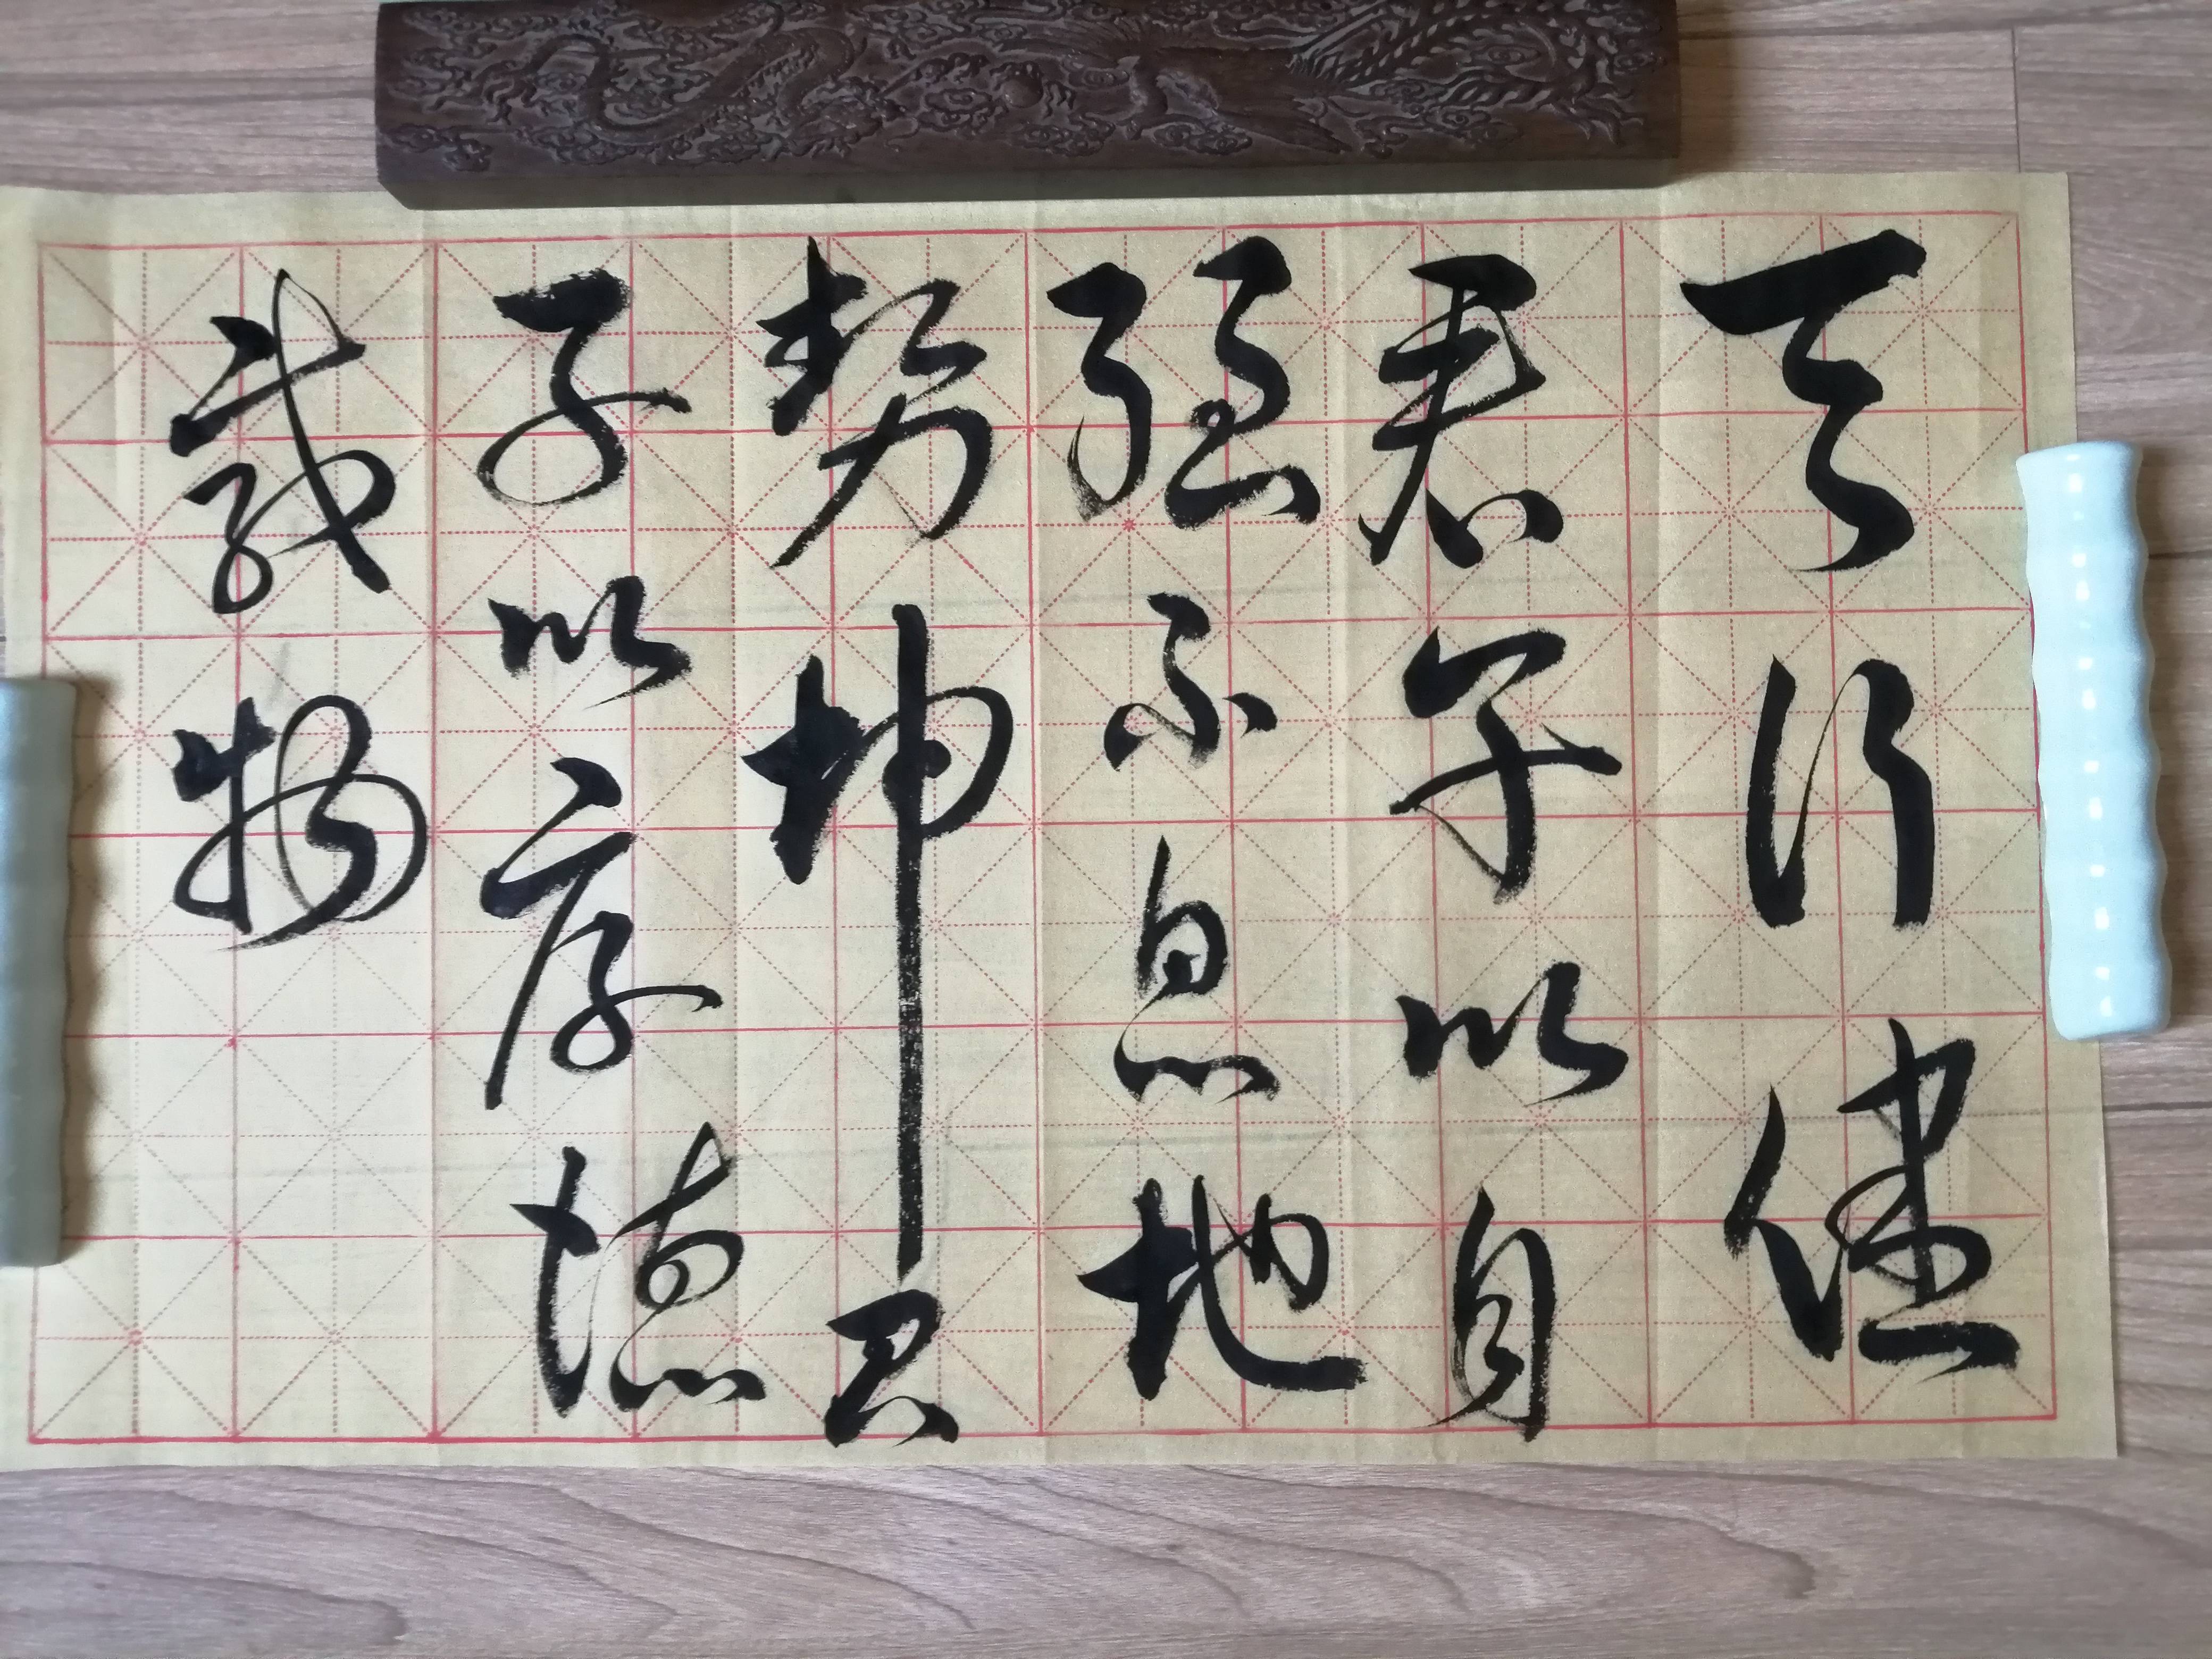 天行健
君子以自
强不息地
势坤君
子以厚德
载物